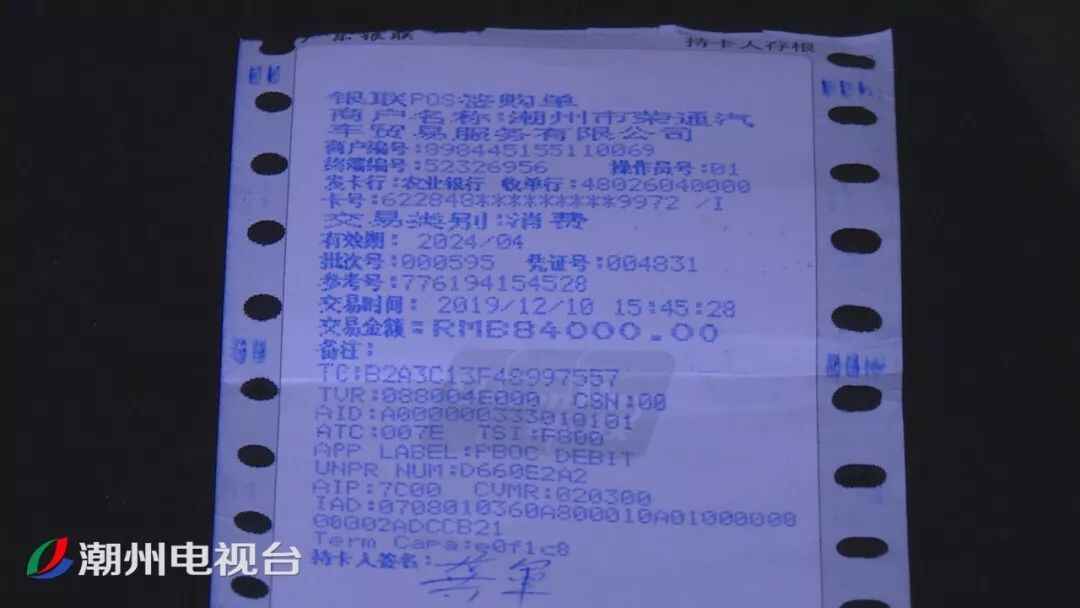 银联 持卡人存根
银联POS签购单
商户名称:潮州市荣通汽
车贸易服务有限公司
商户编号:898445155110069
终端编号:52326956 操作员号:01
发卡行:农业银行 收单行:48026040000
卡号:622848*********9972 /I
交易类别:消费
有效期: 2024/04
批次号:000595 凭证号:004831
参考号:776194154528
交易时间: 2019/12/10 15:45:28
交易金额:RMB84000.00
备注:
TC:B2A3C13F48997557
TVR:088004E000 CSN:00
AID:A000000333010101
ATC:007E TSI:F800
APP LABEL:PBOC DEBIT
UNPR NUM:D660E2A2
AIP:7C00 CVMR:020300
IAD:0708010360A800010A01000008
00002ADCCB21
Term Capa:e0f1c8
持卡人签名:
潮州电视台